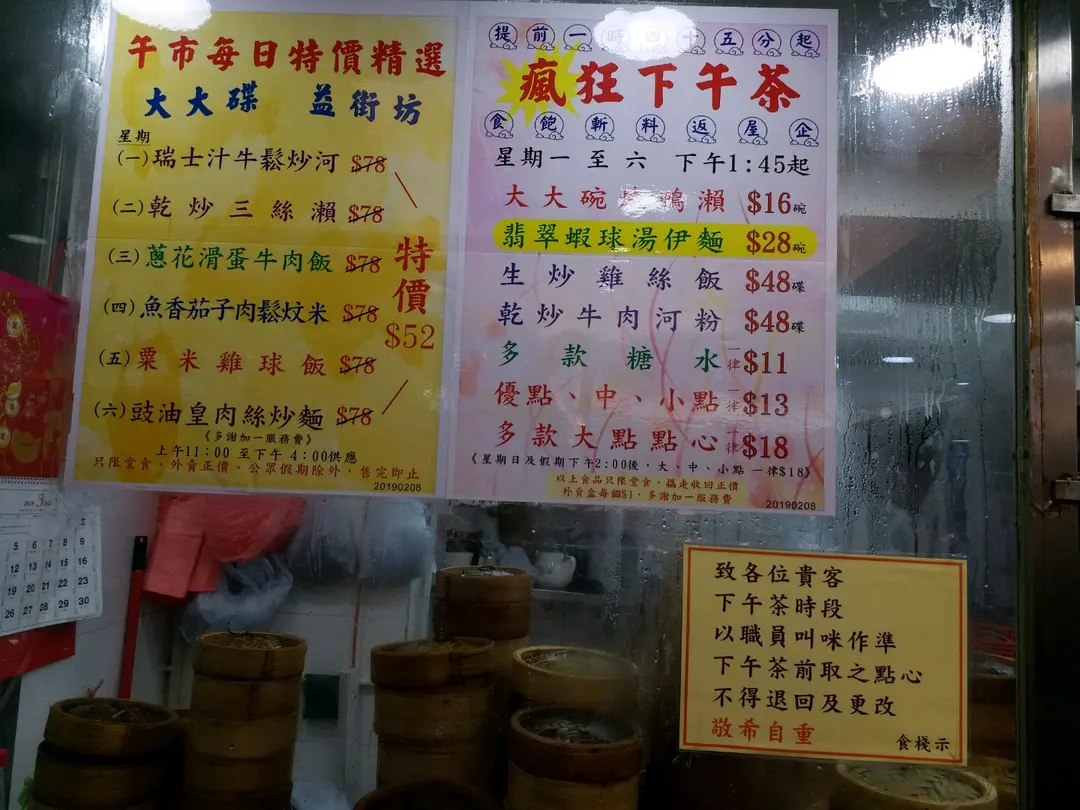 午市每日特價精選
大大碟 益街坊
星期
(一)瑞士汁牛鬆炒河 $78
(二)乾炒三絲瀨 $78
(三)蔥花滑蛋牛肉飯 $78
(四)魚香茄子肉鬆炆米 $78
(五)粟米雞球飯 $78
(六)豉油皇肉絲炒麵 $78
特價
$52
《多謝加一服務費》
上午11:00 至下午 4:00供應
只限堂食、外賣正價、公眾假期除外,售完即止
20190208
提前一時四十五分起
瘋狂下午茶
食飽斬料返屋企
星期一至六 下午1:45起
大大碗燒鴨瀨 $16碗
翡翠蝦球湯伊麵 $28碗
生炒雞絲飯 $48碟
乾炒牛肉河粉 $48碟
多款糖水 一律$11
優點、中、小點 一律$13
多款大點點心 一律$18
《星期日及假期下午2:00後,大、中、小點 一律$18》
以上食品只限堂食,攜走收回正價
外賣盒每個$1,多謝加一服務費
20190208
致各位貴客
下午茶時段
以職員叫咪作準
下午茶前取之點心
不得退回及更改
敬希自重
食棧示
3
5 6 7 8 9
12 13 14 15 16
19 20 21 22 23
26 27 28 29 30